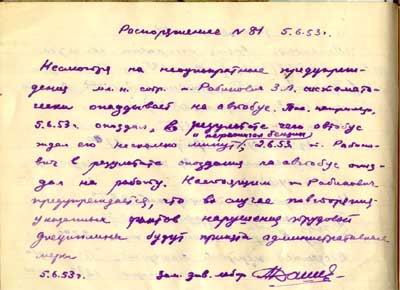 Распоряжение №81 5.6.53г.
Несмотря на неоднократные предупреж-
дения мл. н. сотр. т. Рабинович З.Л. система-
чески опаздывает на автобус. Так, например,
5.6.53г. опоздал, в результате чего автобус
и тратился бензин
ждал его несколько минут; 2.6.53 т. Рабино-
вич в результате опоздания на автобус опоз-
дал на работу. Настоящим т. Рабинович
предупреждается, что в случае повторения
указанных фактов нарушения трудовой
дисциплины будут приняты административные
меры
5.6.53г. Зам. зав. лабор.